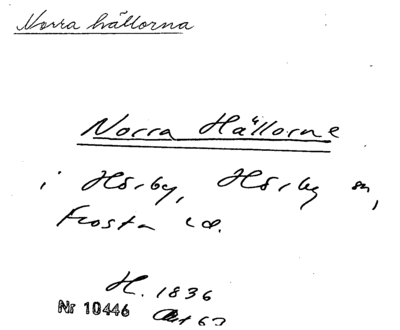 Norra hällorna
Norra Hällorne
i Hörby, Hörby sn,
Frosta hd.
H. 1836
Nr 10446